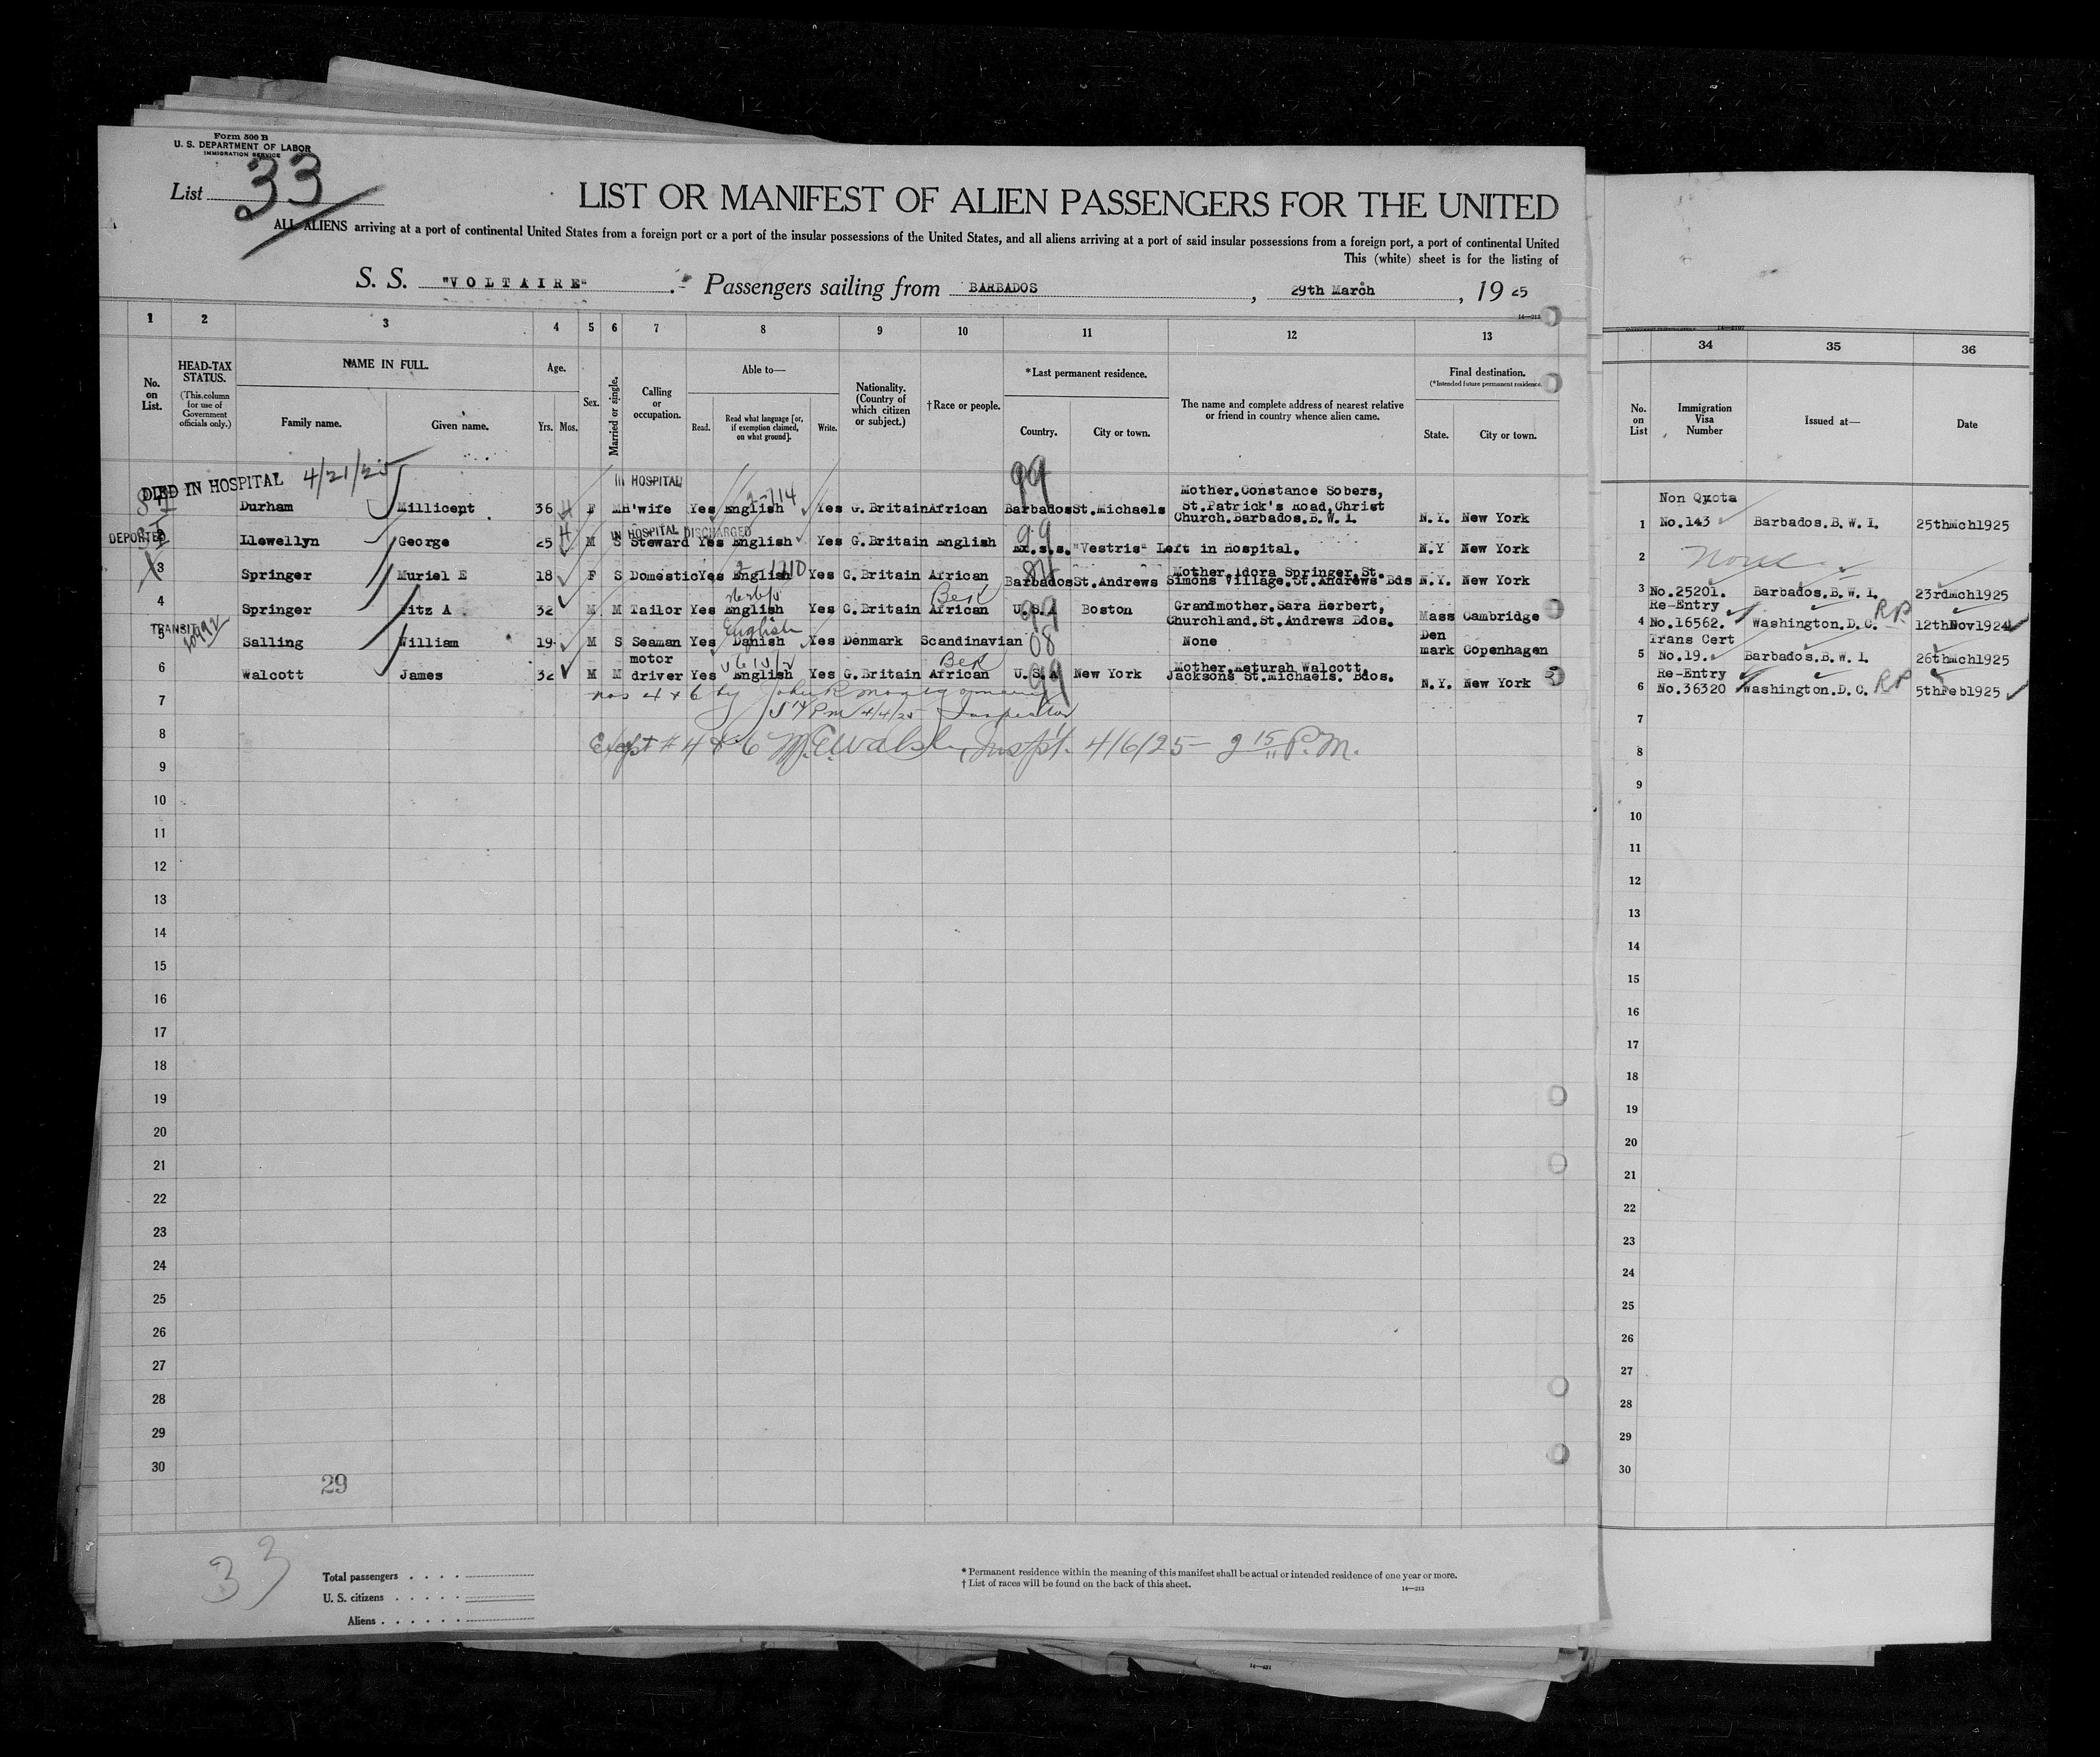 Form 500 B
U. S. DEPARTMENT OF LABOR
IMMIGRATION SERVICE
List 33
LIST OR MANIFEST OF ALIEN PASSENGERS FOR THE UNITED
ALL ALIENS arriving at a port of continental United States from a foreign port or a port of the insular possessions of the United States, and all aliens arriving at a port of said insular possessions from a foreign port, a port of continental United
This (white) sheet is for the listing of
S. S. "VOLTAIRE" Passengers sailing from BARBADOS, 29th March, 19 25
14—213
1 2 3 4 5 6 7 8 9 10 11 12 13 34 35 36
No. on List.
HEAD-TAX STATUS.
(This column for use of Government officials only.)
NAME IN FULL.
Family name. Given name.
Age.
Yrs. Mos.
Sex.
Married or single.
Calling or occupation.
Able to—
Read. Read what language [or, if exemption claimed, on what ground]. Write.
Nationality. (Country of which citizen or subject.)
†Race or people.
*Last permanent residence.
Country. City or town.
The name and complete address of nearest relative or friend in country whence alien came.
Final destination.
(*Intended future permanent residence.)
State. City or town.
No. on List
Immigration Visa Number
Issued at—
Date
DIED IN HOSPITAL 4/21/25
IN HOSPITAL
2-714
99
Durham Millicent 36 H F M H'wife Yes English Yes G.Britain African Barbados St.Michaels Mother.Constance Sobers, St.Patrick's Road,Christ Church.Barbados.B.W.I. N.Y. New York
1 Non Quota No.143 Barbados.B.W.I. 25thmch1925
DEPORTED
IN HOSPITAL DISCHARGED
99
2 Llewellyn George 25 H M S Steward Yes English Yes G.Britain English Ex.s.s."Vestris" Left in Hospital. N.Y New York
2 None
3 Springer Muriel E 18 F S Domestic Yes English Yes G.Britain African Barbados St.Andrews Mother.Idora Springer.St. Simons Village.St.Andrews Bds N.Y. New York
3 No.25201. Barbados.B.W.I. 23rdmch1925
4 Springer Fitz A 32 M M Tailor Yes English Yes G.Britain African U.S.A Boston Grandmother.Sara Herbert, Churchland.St.Andrews Bdos. Mass Cambridge
4 Re-Entry No.16562. Washington.D.C. RP 12thNov1924
TRANSIT
English
5 Salling William 19 M S Seaman Yes Danish Yes Denmark Scandinavian 08 None Den mark Copenhagen
5 Trans Cert No.19. Barbados.B.W.I. 26thmch1925
6 Walcott James 32 M M motor driver Yes English Yes G.Britain African U.S.A New York Mother.Keturah Walcott. Jacksons St.Michaels. Bdos. N.Y. New York
6 Re-Entry No.36320 Washington.D.C. RP 5thFeb1925
nos 4 + 6 by John R Montgomery
4/4/25 Inspector
7
8 Except # 4 & 6 Inspt. 4/6/25 — 2 15 P.M.
9
10
11
12
13
14
15
16
17
18
19
20
21
22
23
24
25
26
27
28
29
30
29
33
Total passengers
U. S. citizens
Aliens
* Permanent residence within the meaning of this manifest shall be actual or intended residence of one year or more.
† List of races will be found on the back of this sheet.
14—213